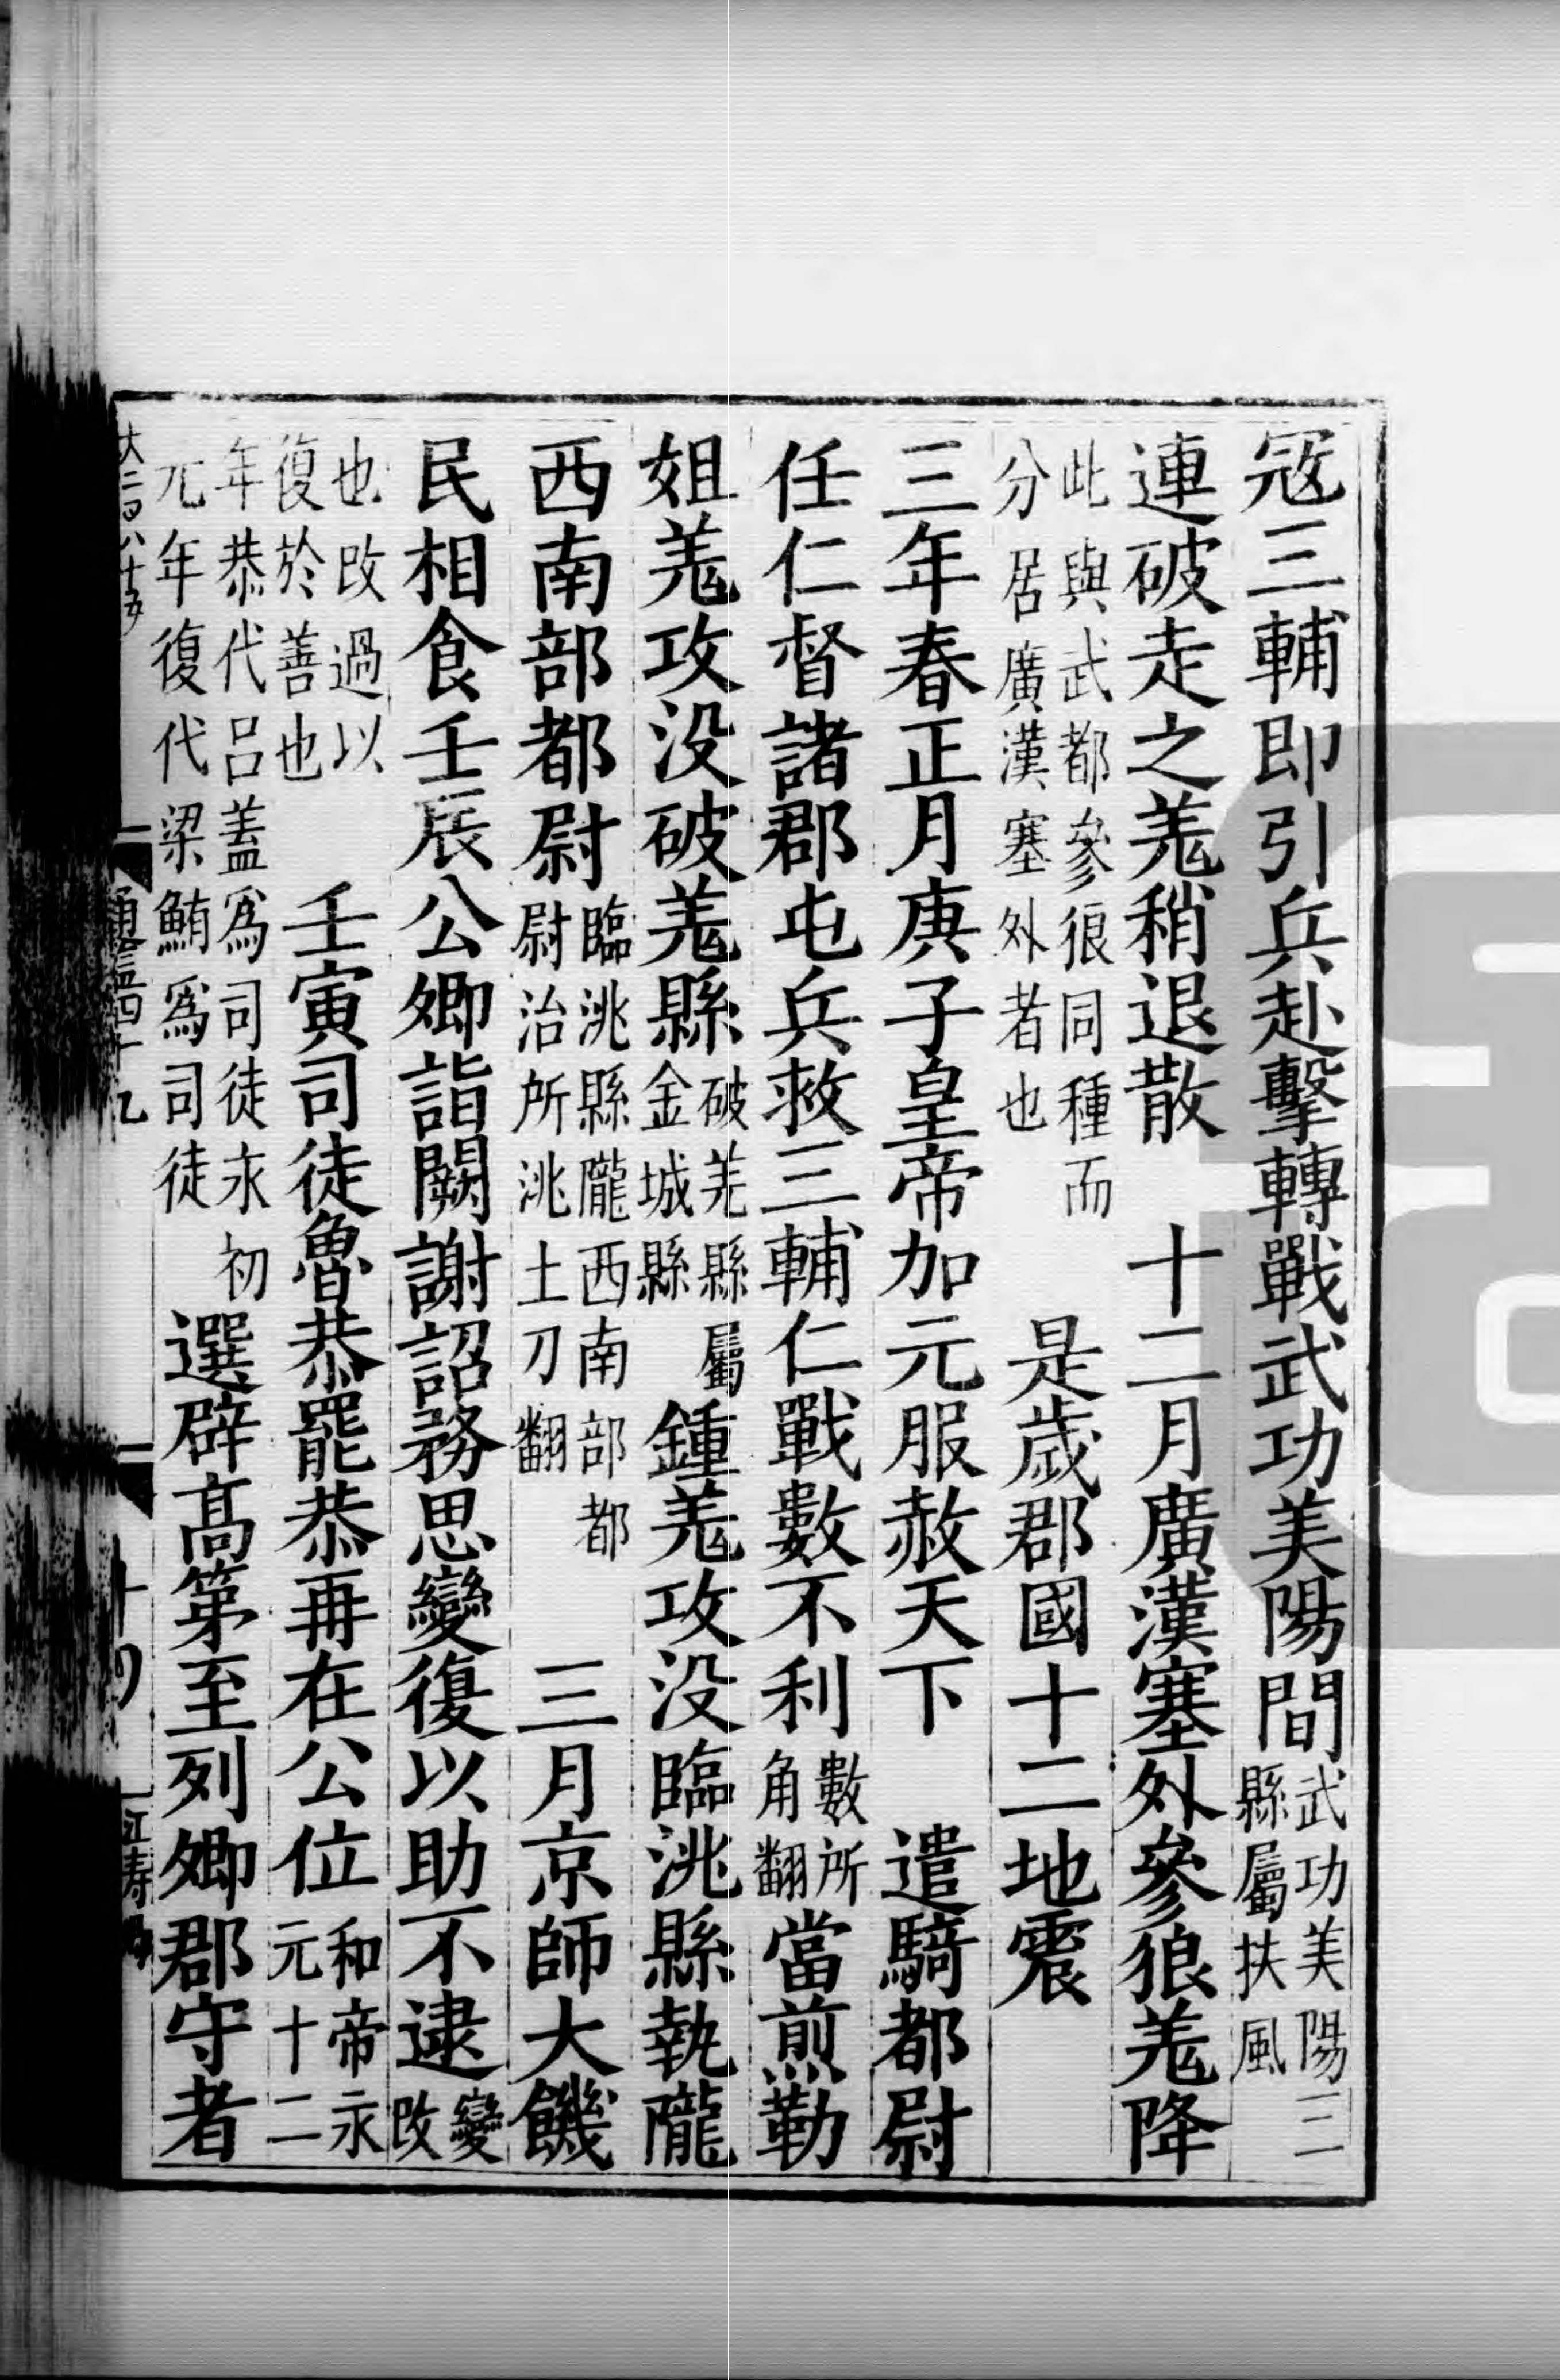 冦三輔即引兵赴擊轉戰武功美陽間武功美陽二縣屬扶風
連破走之羌稍退散　十二月廣漢塞外參狼羌降
此與武都參狼同種而分居廣漢塞外者也　是歲郡國十二地震
三年春正月庚子皇帝加元服赦天下　遣騎都尉
任仁督諸郡屯兵救三輔仁戰數不利數所角翻當煎勒
姐羌攻没破羌縣破羌縣屬金城縣鍾羌攻没臨洮縣執隴
西南部都尉臨洮縣隴西南部都尉治所洮土刀翻　三月京師大饑
民相食壬辰公卿詣闕謝詔務思變復以助不逮變改
也改過以復於善也　壬寅司徒魯恭罷恭再在公位和帝永元十二
年恭代吕蓋爲司徒永初元年復代梁鮪爲司徒　選辟髙第至列卿郡守者